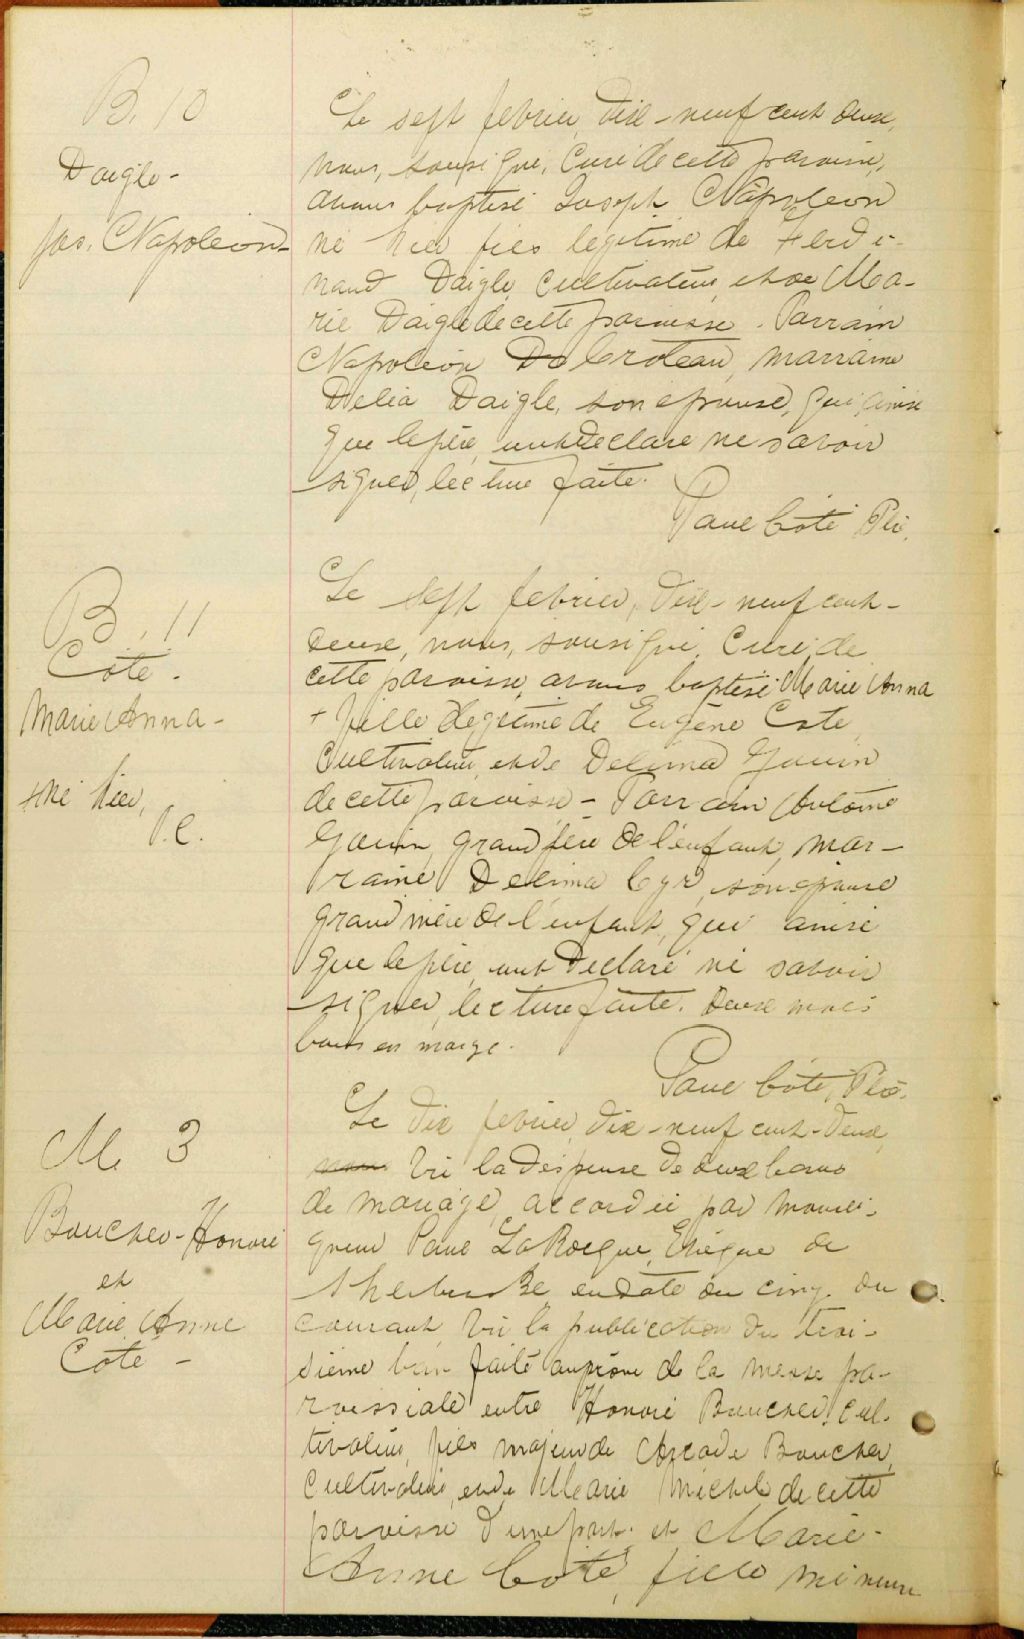 B. 10
Daigle -
Jos. Napoléon -
Le sept février, dix-neuf cent deux,
nous, soussigné, Curé de cette paroisse,
avons baptisé Joseph Napoléon
né hier fils légitime de Ferdi-
nand Daigle, cultivateur, et de Ma-
rie Daigle de cette paroisse. Parrain
Napoléon Da Croteau, marraine
Delia Daigle, son épouse, qui ainsi
que le père, ont déclaré ne savoir
signer, lecture faite.
Paul Côté Ptre.
B. 11
Côté.
Marie Anna -
+ né hier,
P.C.
Le sept février, dix-neuf cent-
deux, nous, soussigné, Curé de
cette paroisse, avons baptisé Marie Anna
+ fille légitime de Eugène Coté,
cultivateur, et de Delima
de cette paroisse - Parrain Antoine
grand père de l'enfant, mar-
raine Delima Cyr, son épouse
grand mère de l'enfant, qui ainsi
que le père, ont déclaré ne savoir
signer, lecture faite. Deux mots
bons en marge.
Paul Côté, Ptre.
M. 3
Boucher - Honoré
et
Marie Anne
Coté -
Le dix février, dix-neuf cent-deux,
nous Vu la dispense de deux bans
de mariage, accordée par Monsei-
gneur Paul LaRocque, Evêque de
Sherbrooke, en date du cinq du
courant, Vu la publication du troi-
sième ban faite au prône de la messe pa-
roissiale entre Honoré Boucher, cul-
tivateur, fils majeur de Arcade Boucher,
cultivateur, et de Marie Michel de cette
paroisse d'une part; et Marie-
Anne Coté, fille mineure